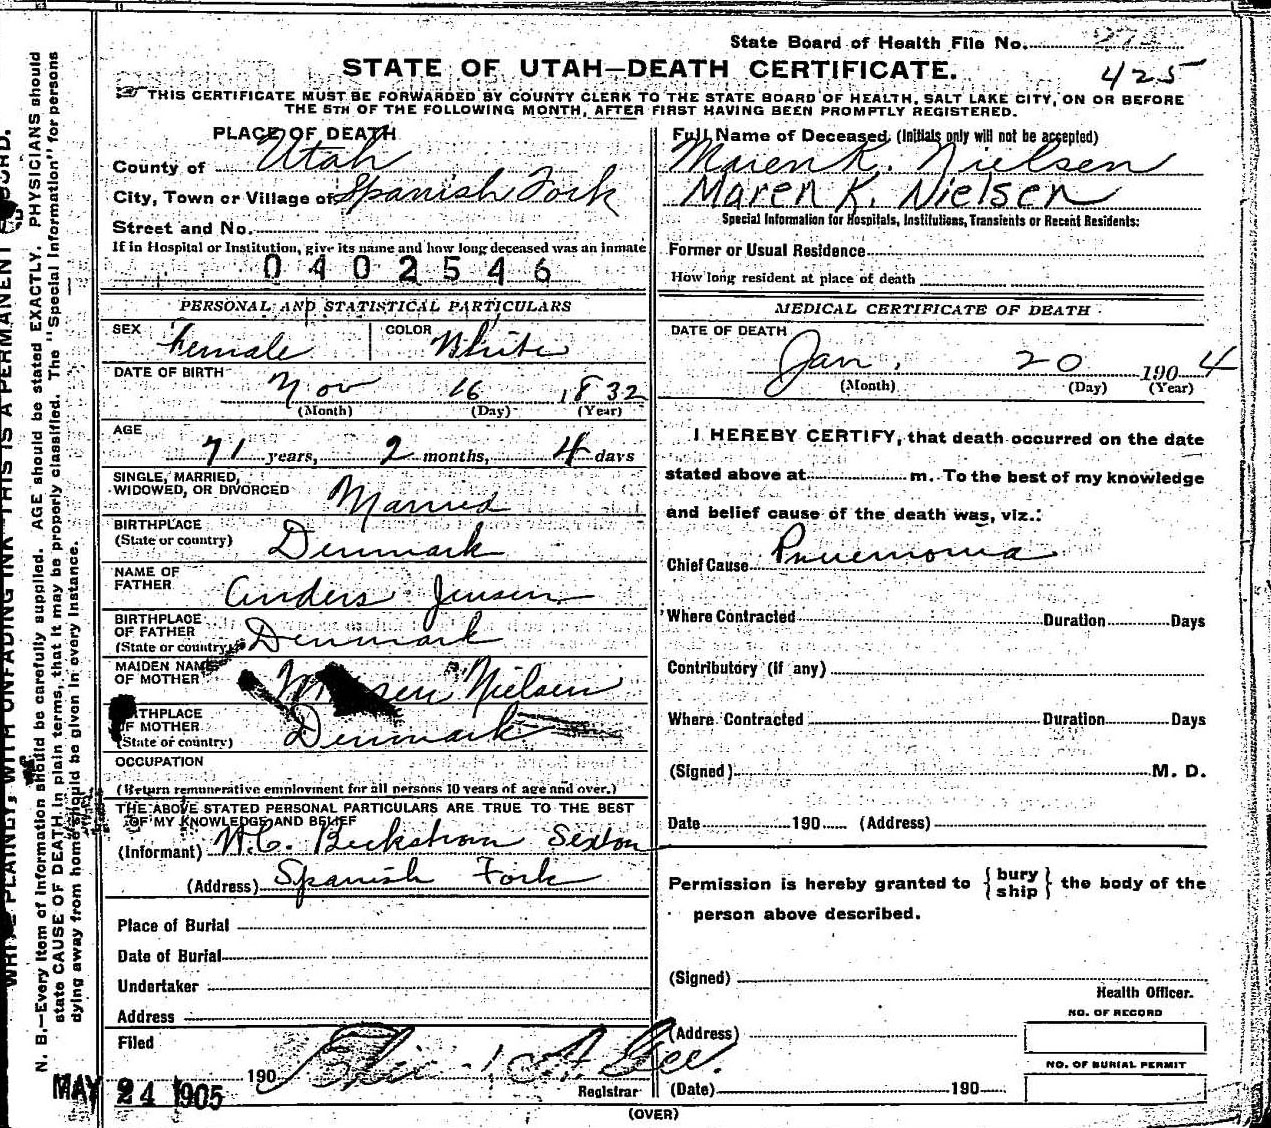 State Board of Health File No.
425
STATE OF UTAH—DEATH CERTIFICATE.
THIS CERTIFICATE MUST BE FORWARDED BY COUNTY CLERK TO THE STATE BOARD OF HEALTH, SALT LAKE CITY, ON OR BEFORE
THE 5TH OF THE FOLLOWING MONTH, AFTER FIRST HAVING BEEN PROMPTLY REGISTERED.
PLACE OF DEATH
County of Utah
City, Town or Village of Spanish Fork
Street and No.
If in Hospital or Institution, give its name and how long deceased was an inmate
0402546
PERSONAL AND STATISTICAL PARTICULARS
SEX Female COLOR White
DATE OF BIRTH
Nov 16 1832
(Month) (Day) (Year)
AGE
71 years, 2 months, 4 days
SINGLE, MARRIED,
WIDOWED, OR DIVORCED Married
BIRTHPLACE
(State or country) Denmark
NAME OF
FATHER Anders Jensen
BIRTHPLACE
OF FATHER
(State or country) Denmark
MAIDEN NAME
OF MOTHER Nielsen
OF MOTHER
(State or country) Denmark
OCCUPATION
(Return remunerative employment for all persons 10 years of age and over.)
THE ABOVE STATED PERSONAL PARTICULARS ARE TRUE TO THE BEST
OF MY KNOWLEDGE AND BELIEF
(Informant) W.C. Beckstrom Sexton
(Address) Spanish Fork
Place of Burial
Date of Burial
Undertaker
Address
Filed
190
MAY 24 1905
Registrar
Full Name of Deceased. (Initials only will not be accepted)
Maren K. Nielsen
Maren K. Nielsen
Special Information for Hospitals, Institutions, Transients or Recent Residents:
Former or Usual Residence
How long resident at place of death
MEDICAL CERTIFICATE OF DEATH
DATE OF DEATH
Jan. 20 1904
(Month) (Day) (Year)
I HEREBY CERTIFY, that death occurred on the date
stated above at m. To the best of my knowledge
and belief cause of the death was, viz.:
Chief Cause Pnuemonia
Where Contracted Duration Days
Contributory (if any)
Where Contracted Duration Days
(Signed) M. D.
Date 190 (Address)
Permission is hereby granted to { bury ship } the body of the
person above described.
(Signed)
Health Officer.
(Address)
NO. OF RECORD
NO. OF BURIAL PERMIT
(Date) 190
(OVER)
N. B.—Every item of Information should be carefully supplied. AGE should be stated EXACTLY. PHYSICIANS should
state CAUSE OF DEATH in plain terms, that it may be properly classified. The "Special Information" for persons
dying away from home should be given in every instance.
PLAINLY, WITH UNFADING INK—THIS IS A PERMANENT